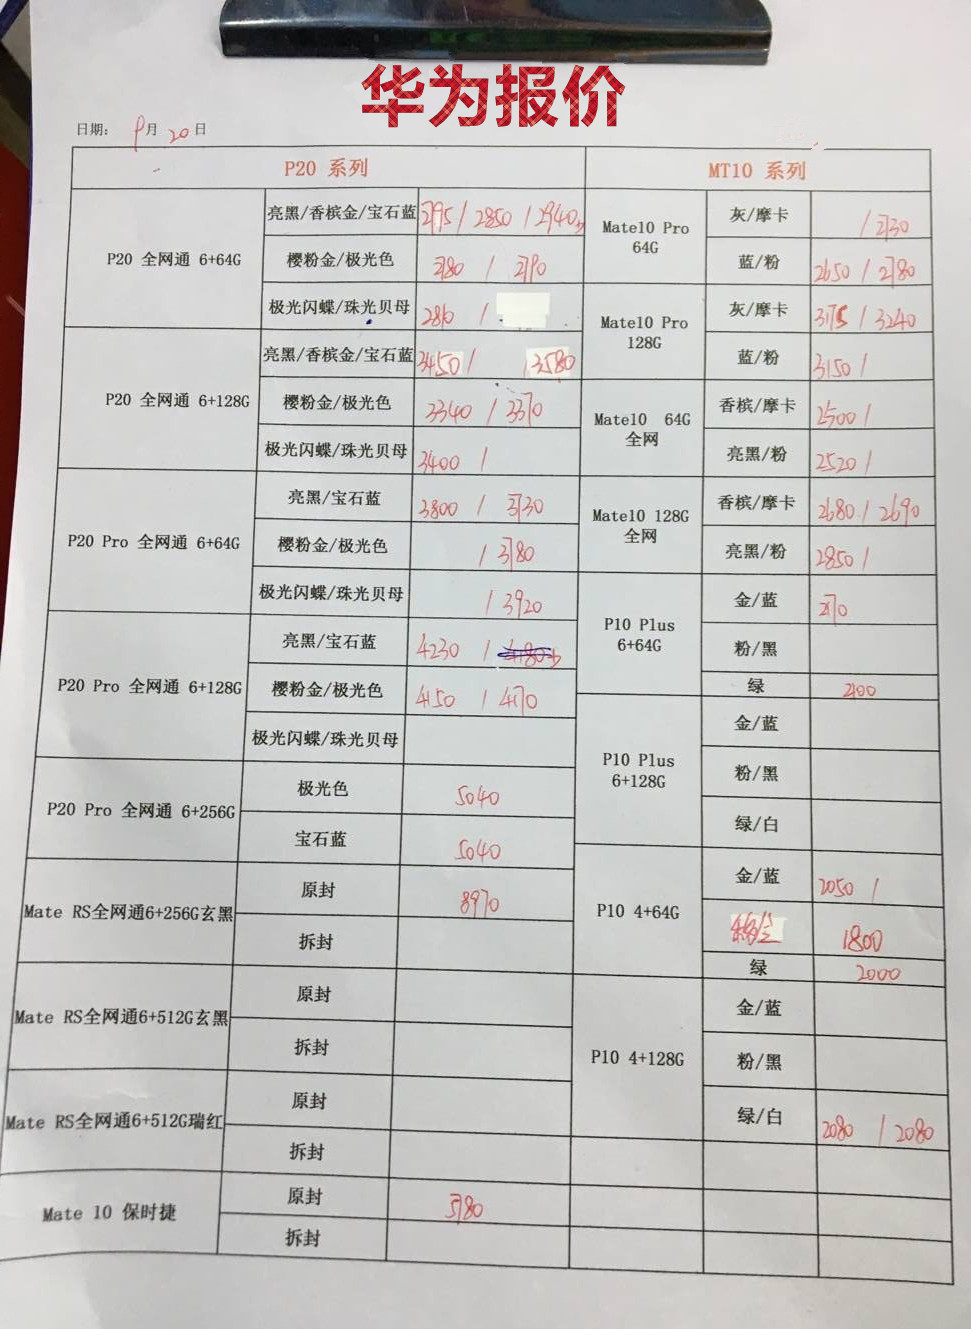 华为报价
日期: 9月20日
P20 系列
MT10 系列
P20 全网通 6+64G
亮黑/香槟金/宝石蓝 2795 / 2850 / 2940
樱粉金/极光色 2780 / 2790
极光闪蝶/珠光贝母 /
P20 全网通 6+128G
亮黑/香槟金/宝石蓝 3450 / / 3580
樱粉金/极光色 3340 / 3370
极光闪蝶/珠光贝母 3400 /
P20 Pro 全网通 6+64G
亮黑/宝石蓝 3800 / 3730
樱粉金/极光色 / 3780
极光闪蝶/珠光贝母 / 3920
P20 Pro 全网通 6+128G
亮黑/宝石蓝 4230 /
樱粉金/极光色 4150 / 4170
极光闪蝶/珠光贝母
P20 Pro 全网通 6+256G
极光色 5040
宝石蓝 5040
Mate RS全网通6+256G玄黑
原封 8970
拆封
Mate RS全网通6+512G玄黑
原封
拆封
Mate RS全网通6+512G瑞红
原封
拆封
Mate 10 保时捷
原封 5780
拆封
Mate10 Pro
64G
灰/摩卡 / 2730
蓝/粉 2650 / 2780
Mate10 Pro
128G
灰/摩卡 3175 / 3240
蓝/粉 3150 /
Mate10 64G
全网
香槟/摩卡 2500 /
亮黑/粉 2520 /
Mate10 128G
全网
香槟/摩卡 2680 / 2690
亮黑/粉 2850 /
P10 Plus
6+64G
金/蓝
粉/黑
绿 2100
P10 Plus
6+128G
金/蓝
粉/黑
绿/白
P10 4+64G
金/蓝 2050 /
1800
绿 2000
P10 4+128G
金/蓝
粉/黑
绿/白 2080 / 2080